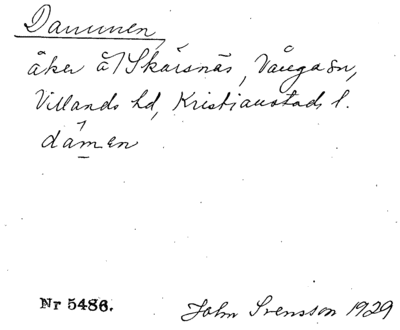 Dammen,
åker å/ Skärsnäs, Vånga sn,
Villands hd, Kristianstads l.
dámen
Nr 5486.
John Svensson 1929